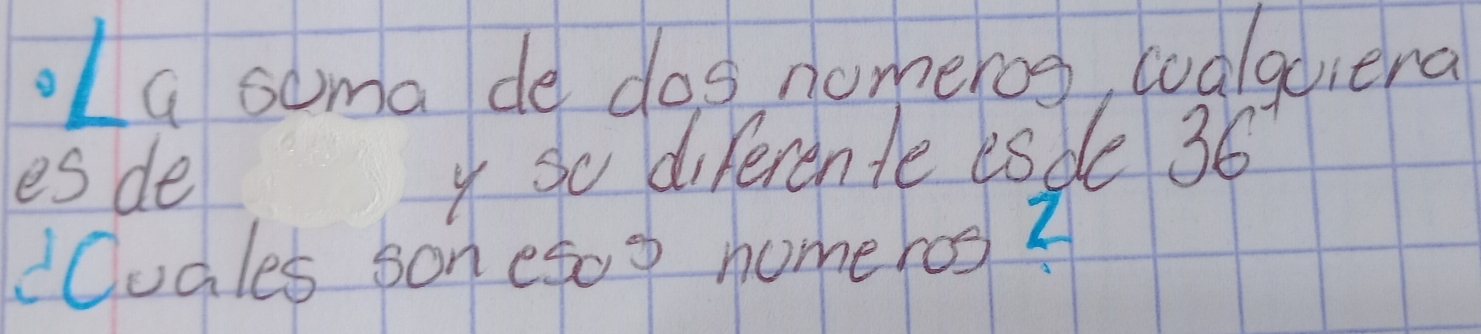 •La suma de dos numeros, cualquiera
es de y su diferente es de 36
¿Cuales son esos numeros?